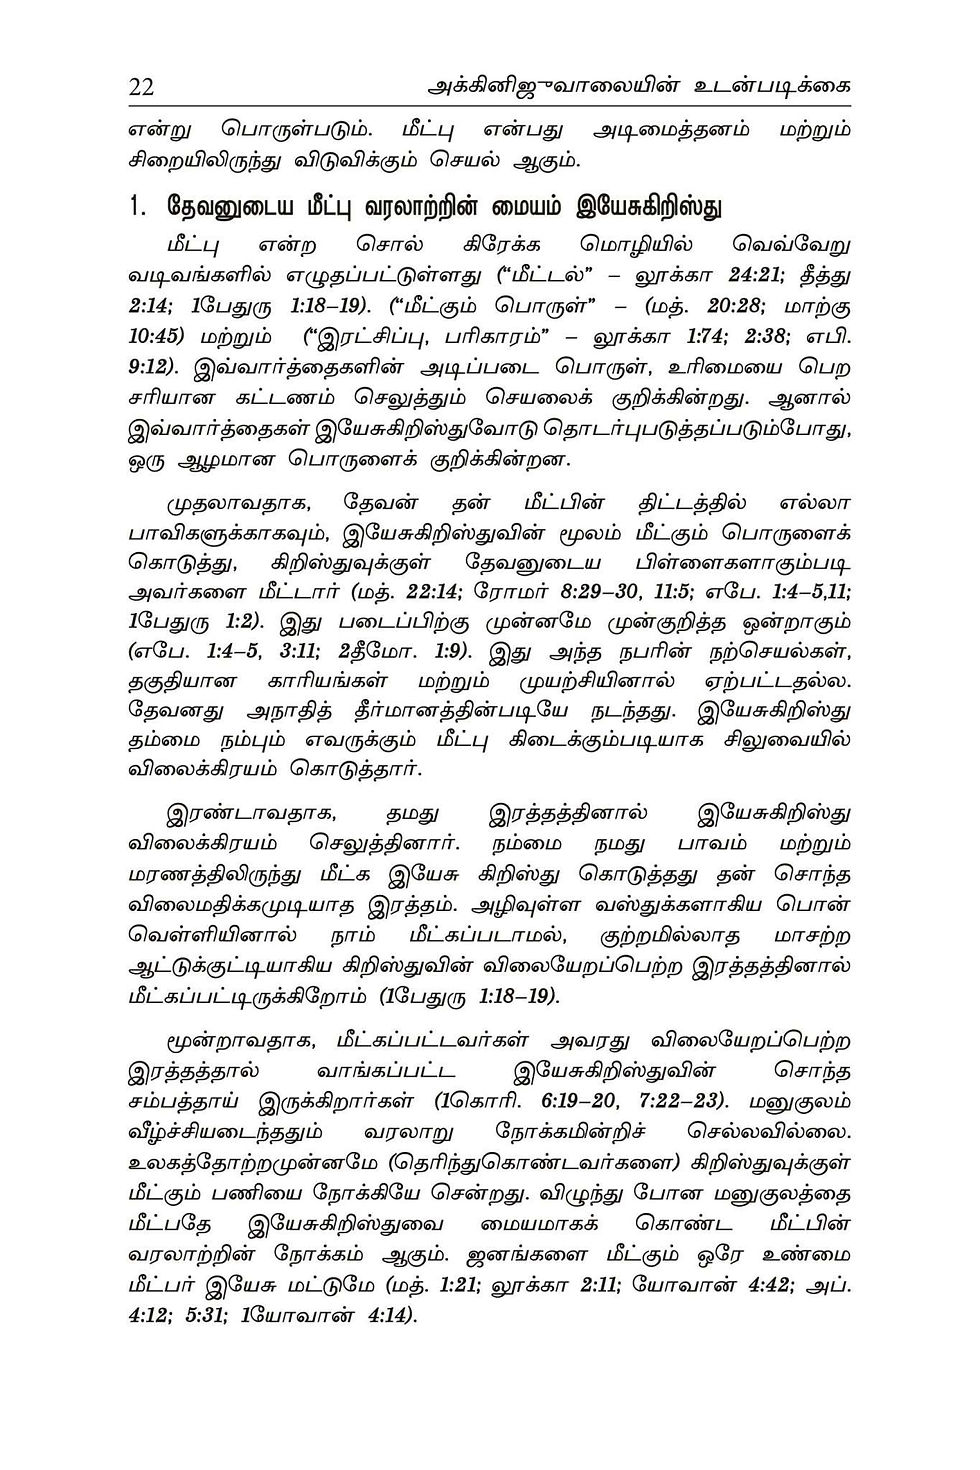 22
அக்கினிஜுவாலையின் உடன்படிக்கை
என்று பொருள்படும். மீட்பு என்பது அடிமைத்தனம் மற்றும்
சிறையிலிருந்து விடுவிக்கும் செயல் ஆகும்.
1. தேவனுடைய மீட்பு வரலாற்றின் மையம் இயேசுகிறிஸ்து
மீட்பு என்ற சொல் கிரேக்க மொழியில் வெவ்வேறு
வடிவங்களில் எழுதப்பட்டுள்ளது (“மீட்டல்” – லூக்கா 24:21; தீத்து
2:14; 1பேதுரு 1:18–19). (“மீட்கும் பொருள்” – (மத். 20:28; மாற்கு
10:45) மற்றும் (“இரட்சிப்பு, பரிகாரம்” – லூக்கா 1:74; 2:38; எபி.
9:12). இவ்வார்த்தைகளின் அடிப்படை பொருள், உரிமையை பெற
சரியான கட்டணம் செலுத்தும் செயலைக் குறிக்கின்றது. ஆனால்
இவ்வார்த்தைகள் இயேசுகிறிஸ்துவோடு தொடர்புபடுத்தப்படும்போது,
ஒரு ஆழமான பொருளைக் குறிக்கின்றன.
முதலாவதாக, தேவன் தன் மீட்பின் திட்டத்தில் எல்லா
பாவிகளுக்காகவும், இயேசுகிறிஸ்துவின் மூலம் மீட்கும் பொருளைக்
கொடுத்து, கிறிஸ்துவுக்குள் தேவனுடைய பிள்ளைகளாகும்படி
அவர்களை மீட்டார் (மத். 22:14; ரோமர் 8:29–30, 11:5; எபே. 1:4–5,11;
1பேதுரு 1:2). இது படைப்பிற்கு முன்னமே முன்குறித்த ஒன்றாகும்
(எபே. 1:4–5, 3:11; 2தீமோ. 1:9). இது அந்த நபரின் நற்செயல்கள்,
தகுதியான காரியங்கள் மற்றும் முயற்சியினால் ஏற்பட்டதல்ல.
தேவனது அநாதித் தீர்மானத்தின்படியே நடந்தது. இயேசுகிறிஸ்து
தம்மை நம்பும் எவருக்கும் மீட்பு கிடைக்கும்படியாக சிலுவையில்
விலைக்கிரயம் கொடுத்தார்.
இரண்டாவதாக, தமது இரத்தத்தினால் இயேசுகிறிஸ்து
விலைக்கிரயம் செலுத்தினார். நம்மை நமது பாவம் மற்றும்
மரணத்திலிருந்து மீட்க இயேசு கிறிஸ்து கொடுத்தது தன் சொந்த
விலைமதிக்கமுடியாத இரத்தம். அழிவுள்ள வஸ்துக்களாகிய பொன்
வெள்ளியினால் நாம் மீட்கப்படாமல், குற்றமில்லாத மாசற்ற
ஆட்டுக்குட்டியாகிய கிறிஸ்துவின் விலையேறப்பெற்ற இரத்தத்தினால்
மீட்கப்பட்டிருக்கிறோம் (1பேதுரு 1:18–19).
மூன்றாவதாக, மீட்கப்பட்டவர்கள் அவரது விலையேறப்பெற்ற
இரத்தத்தால் வாங்கப்பட்ட இயேசுகிறிஸ்துவின் சொந்த
சம்பத்தாய் இருக்கிறார்கள் (1கொரி. 6:19–20, 7:22–23). மனுகுலம்
வீழ்ச்சியடைந்ததும் வரலாறு நோக்கமின்றிச் செல்லவில்லை.
உலகத்தோற்றமுன்னமே (தெரிந்துகொண்டவர்களை) கிறிஸ்துவுக்குள்
மீட்கும் பணியை நோக்கியே சென்றது. விழுந்து போன மனுகுலத்தை
மீட்பதே இயேசுகிறிஸ்துவை மையமாகக் கொண்ட மீட்பின்
வரலாற்றின் நோக்கம் ஆகும். ஜனங்களை மீட்கும் ஒரே உண்மை
மீட்பர் இயேசு மட்டுமே (மத். 1:21; லூக்கா 2:11; யோவான் 4:42; அப்.
4:12; 5:31; 1யோவான் 4:14).